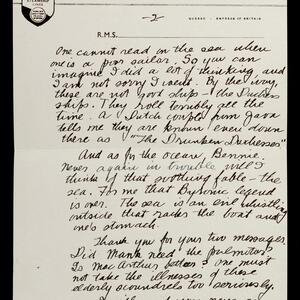 STEAMSHIP LINES
- 2 -
QUEBEC - EMPRESS OF BRITAIN
R.M.S.
One cannot read on the sea when
one is a poor sailor. So you can
imagine I did a lot of thinking, and
I am not sorry I went. By the way,
these are not good ships - the Duchess
ships. They roll terribly all the
time. A Dutch couple from Java
tells me they are known even down
there as "The Drunken Duchesses"
And as for the ocean, Bennie.
Never again
thinks of that soothing fable - the
sea. For me that Byronic legend
is over. The sea is an evil whistling
outside that racks the boat and
one's stomach.
Thank you for your two messages.
Did Mama need the pulmotor?
Is MacArthur better? One must
not take the illnesses of these
elderly scoundrels too seriously.